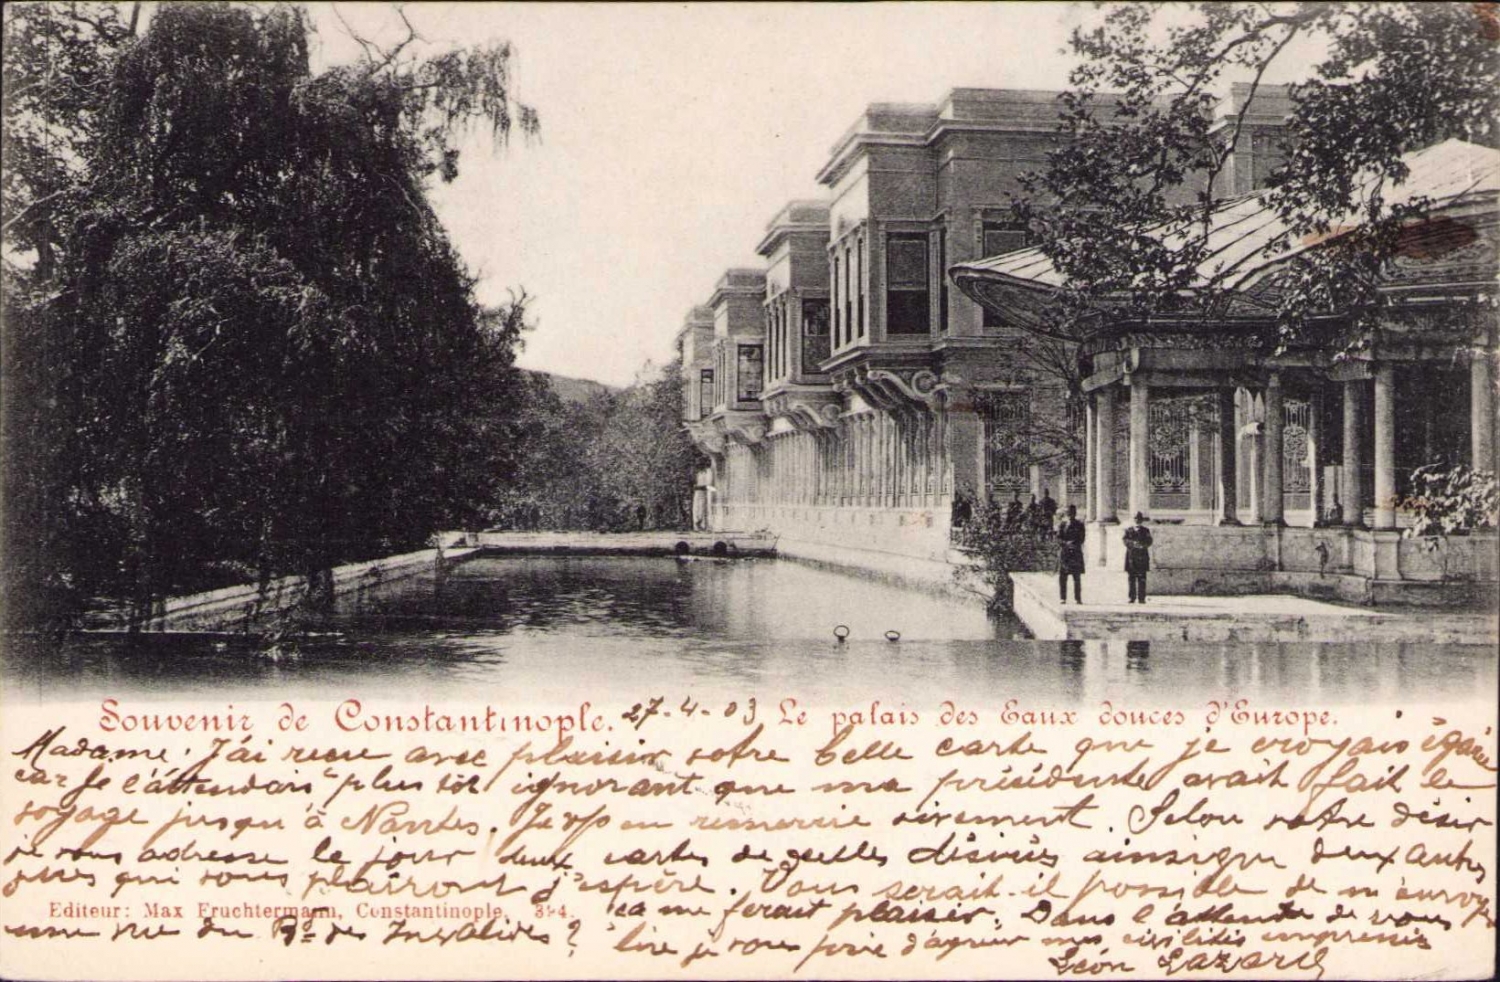 Souvenir de Constantinople. 27-4-03 Le palais des Eaux douces d'Europe.
Madame. J'ai reçu avec plaisir votre belle carte que je croyais égarée
car je l'attendais plus tôt ignorant que ma précédente avait fait le
voyage jusqu'à Nantes. Je vs en remercie vivement. Selon votre désir
je vous adresse le jour deux cartes de celles désirées ainsi que deux autres
vues qui vous plairont j'espère. Vous serait-il possible de m'envoyer
Editeur: Max Fruchtermann, Constantinople. 394. ça me ferait plaisir. Dans l'attente de vous
une vue du Bd des Invalides? lire je vous prie d'agréer mes civilités empressées
Léon Lazard